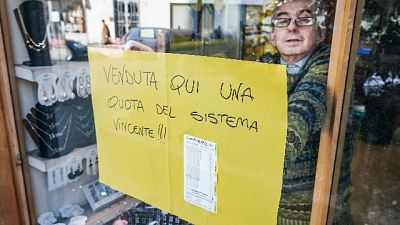 VENDUTA QUI UNA
QUOTA DEL SISTEMA
VINCENTE!!!